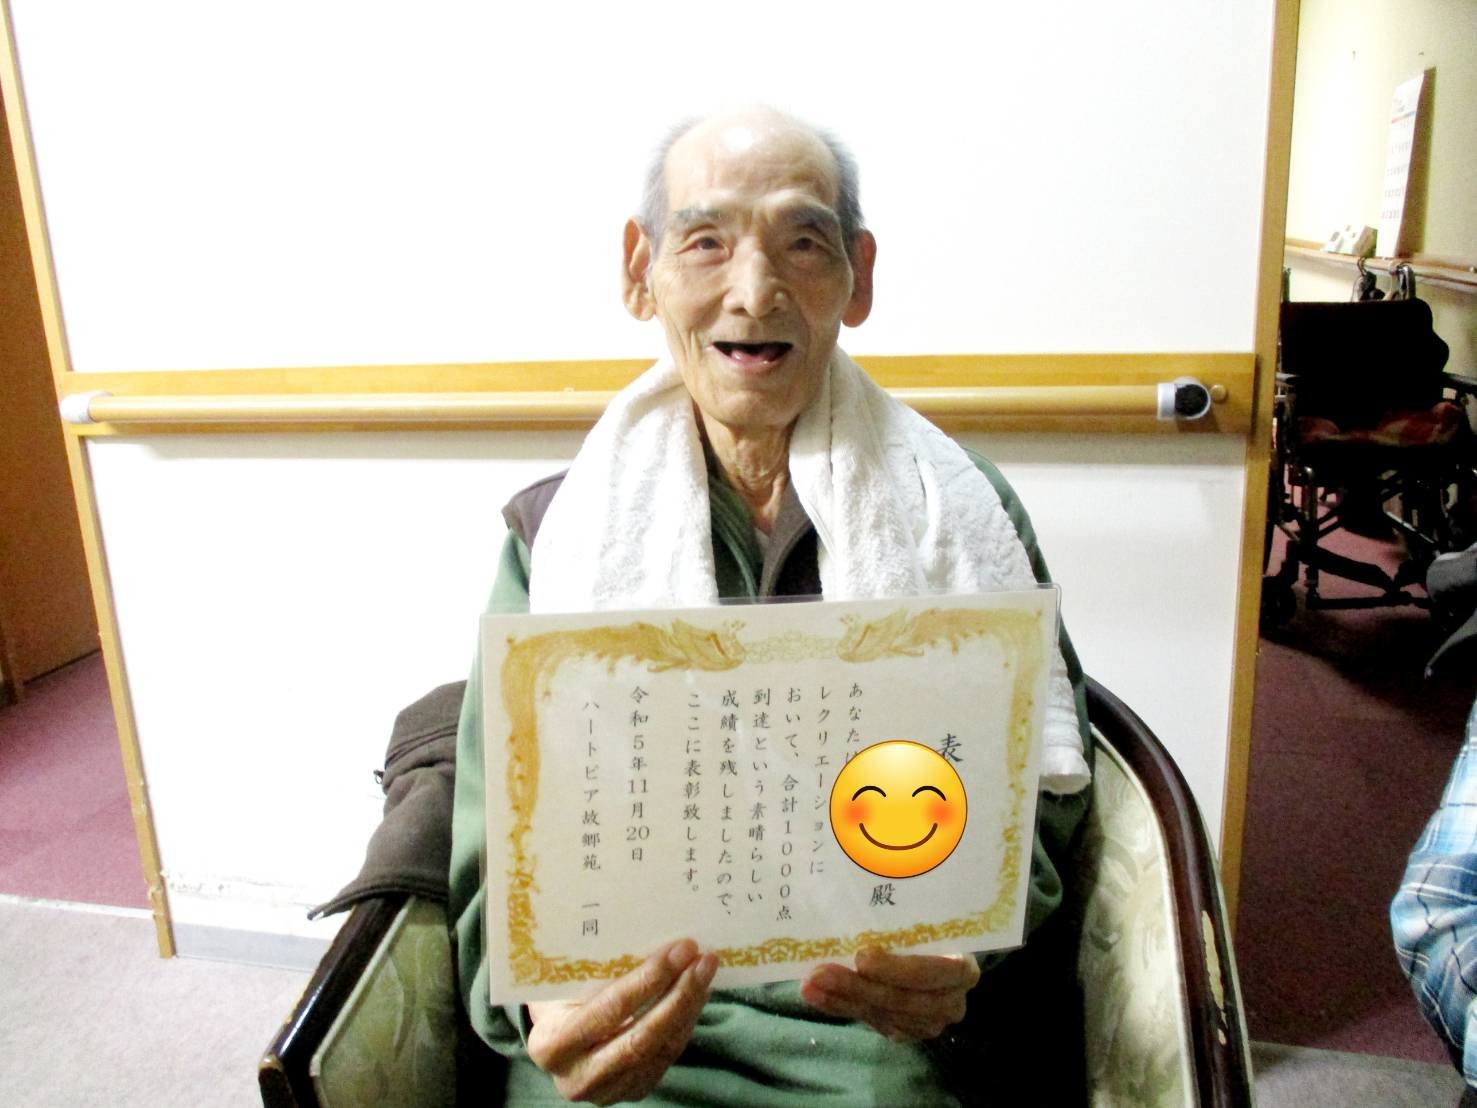 表
殿
あなたは
レクリエーションに
おいて、合計1000点
到達という素晴らしい
成績を残しましたので、
ここに表彰致します。
令和5年11月20日
ハートピア故郷苑 一同